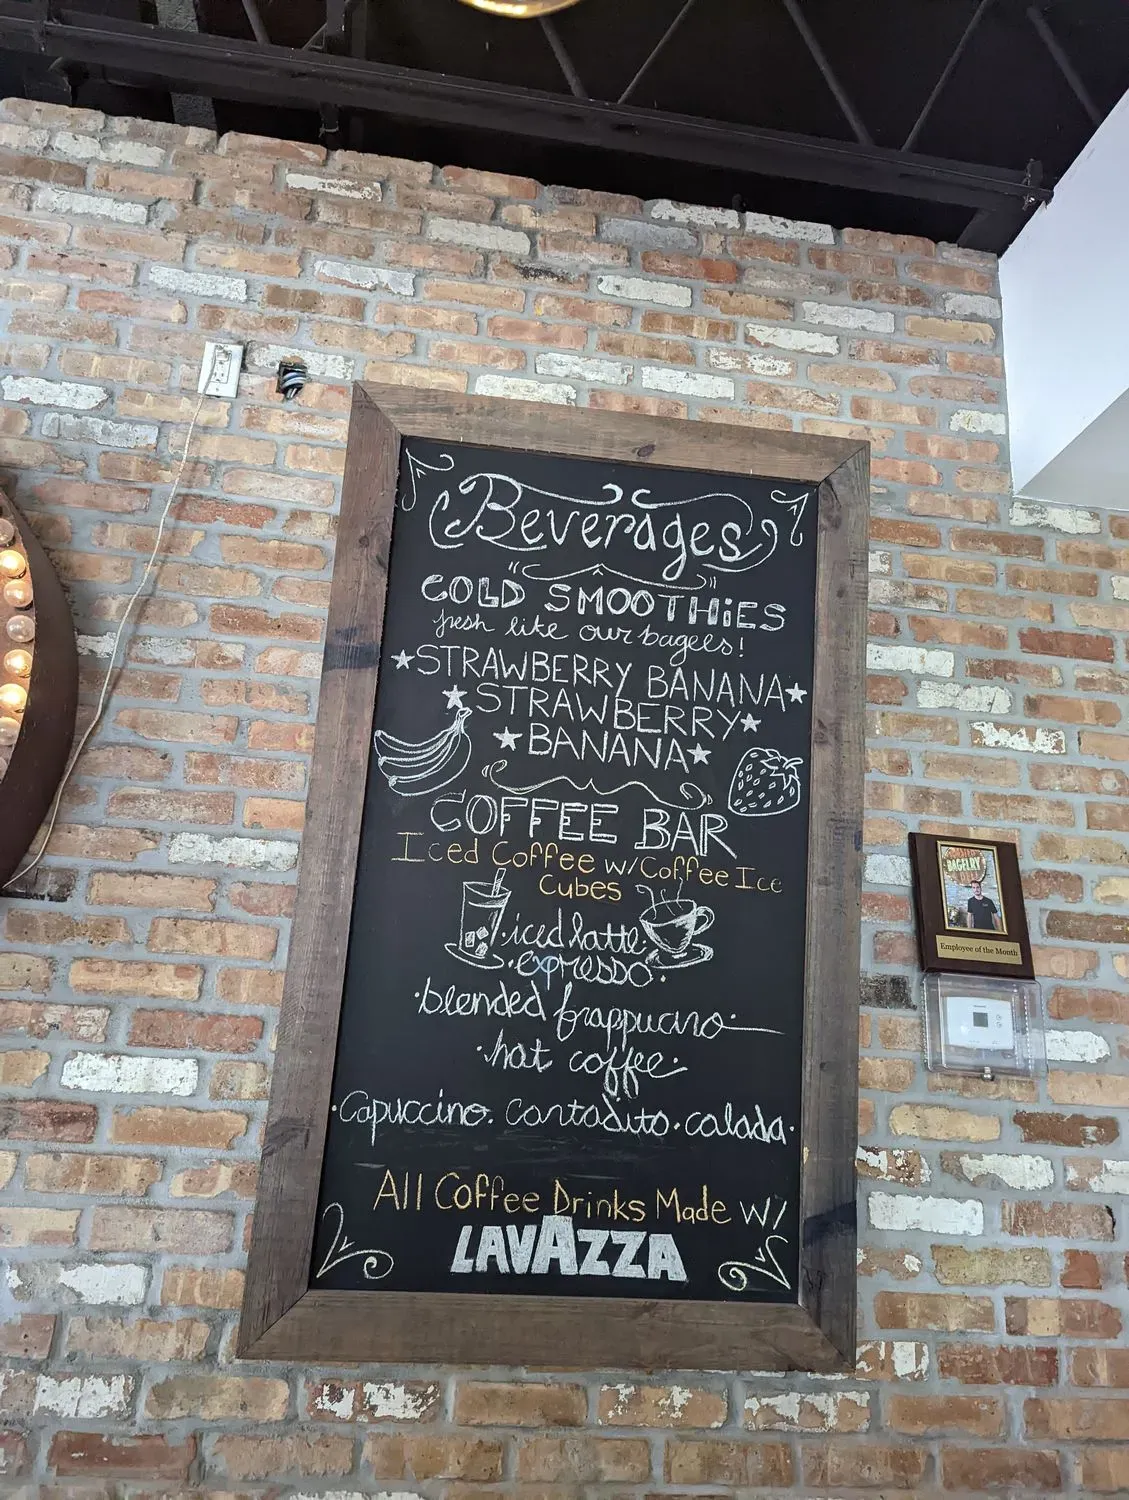 Beverages
COLD SMOOTHiES
fresh like our bagels!
★STRAWBERRY BANANA★
★STRAWBERRY★
★BANANA★
COFFEE BAR
Iced Coffee w/Coffee Ice
Cubes
·iced latte·
·expresso·
·blended frappucino·
·hot coffee·
·Capuccino· Cortadito·colada·
All Coffee Drinks Made W/
LAVAZZA
BAGELRY
Employee of the Month